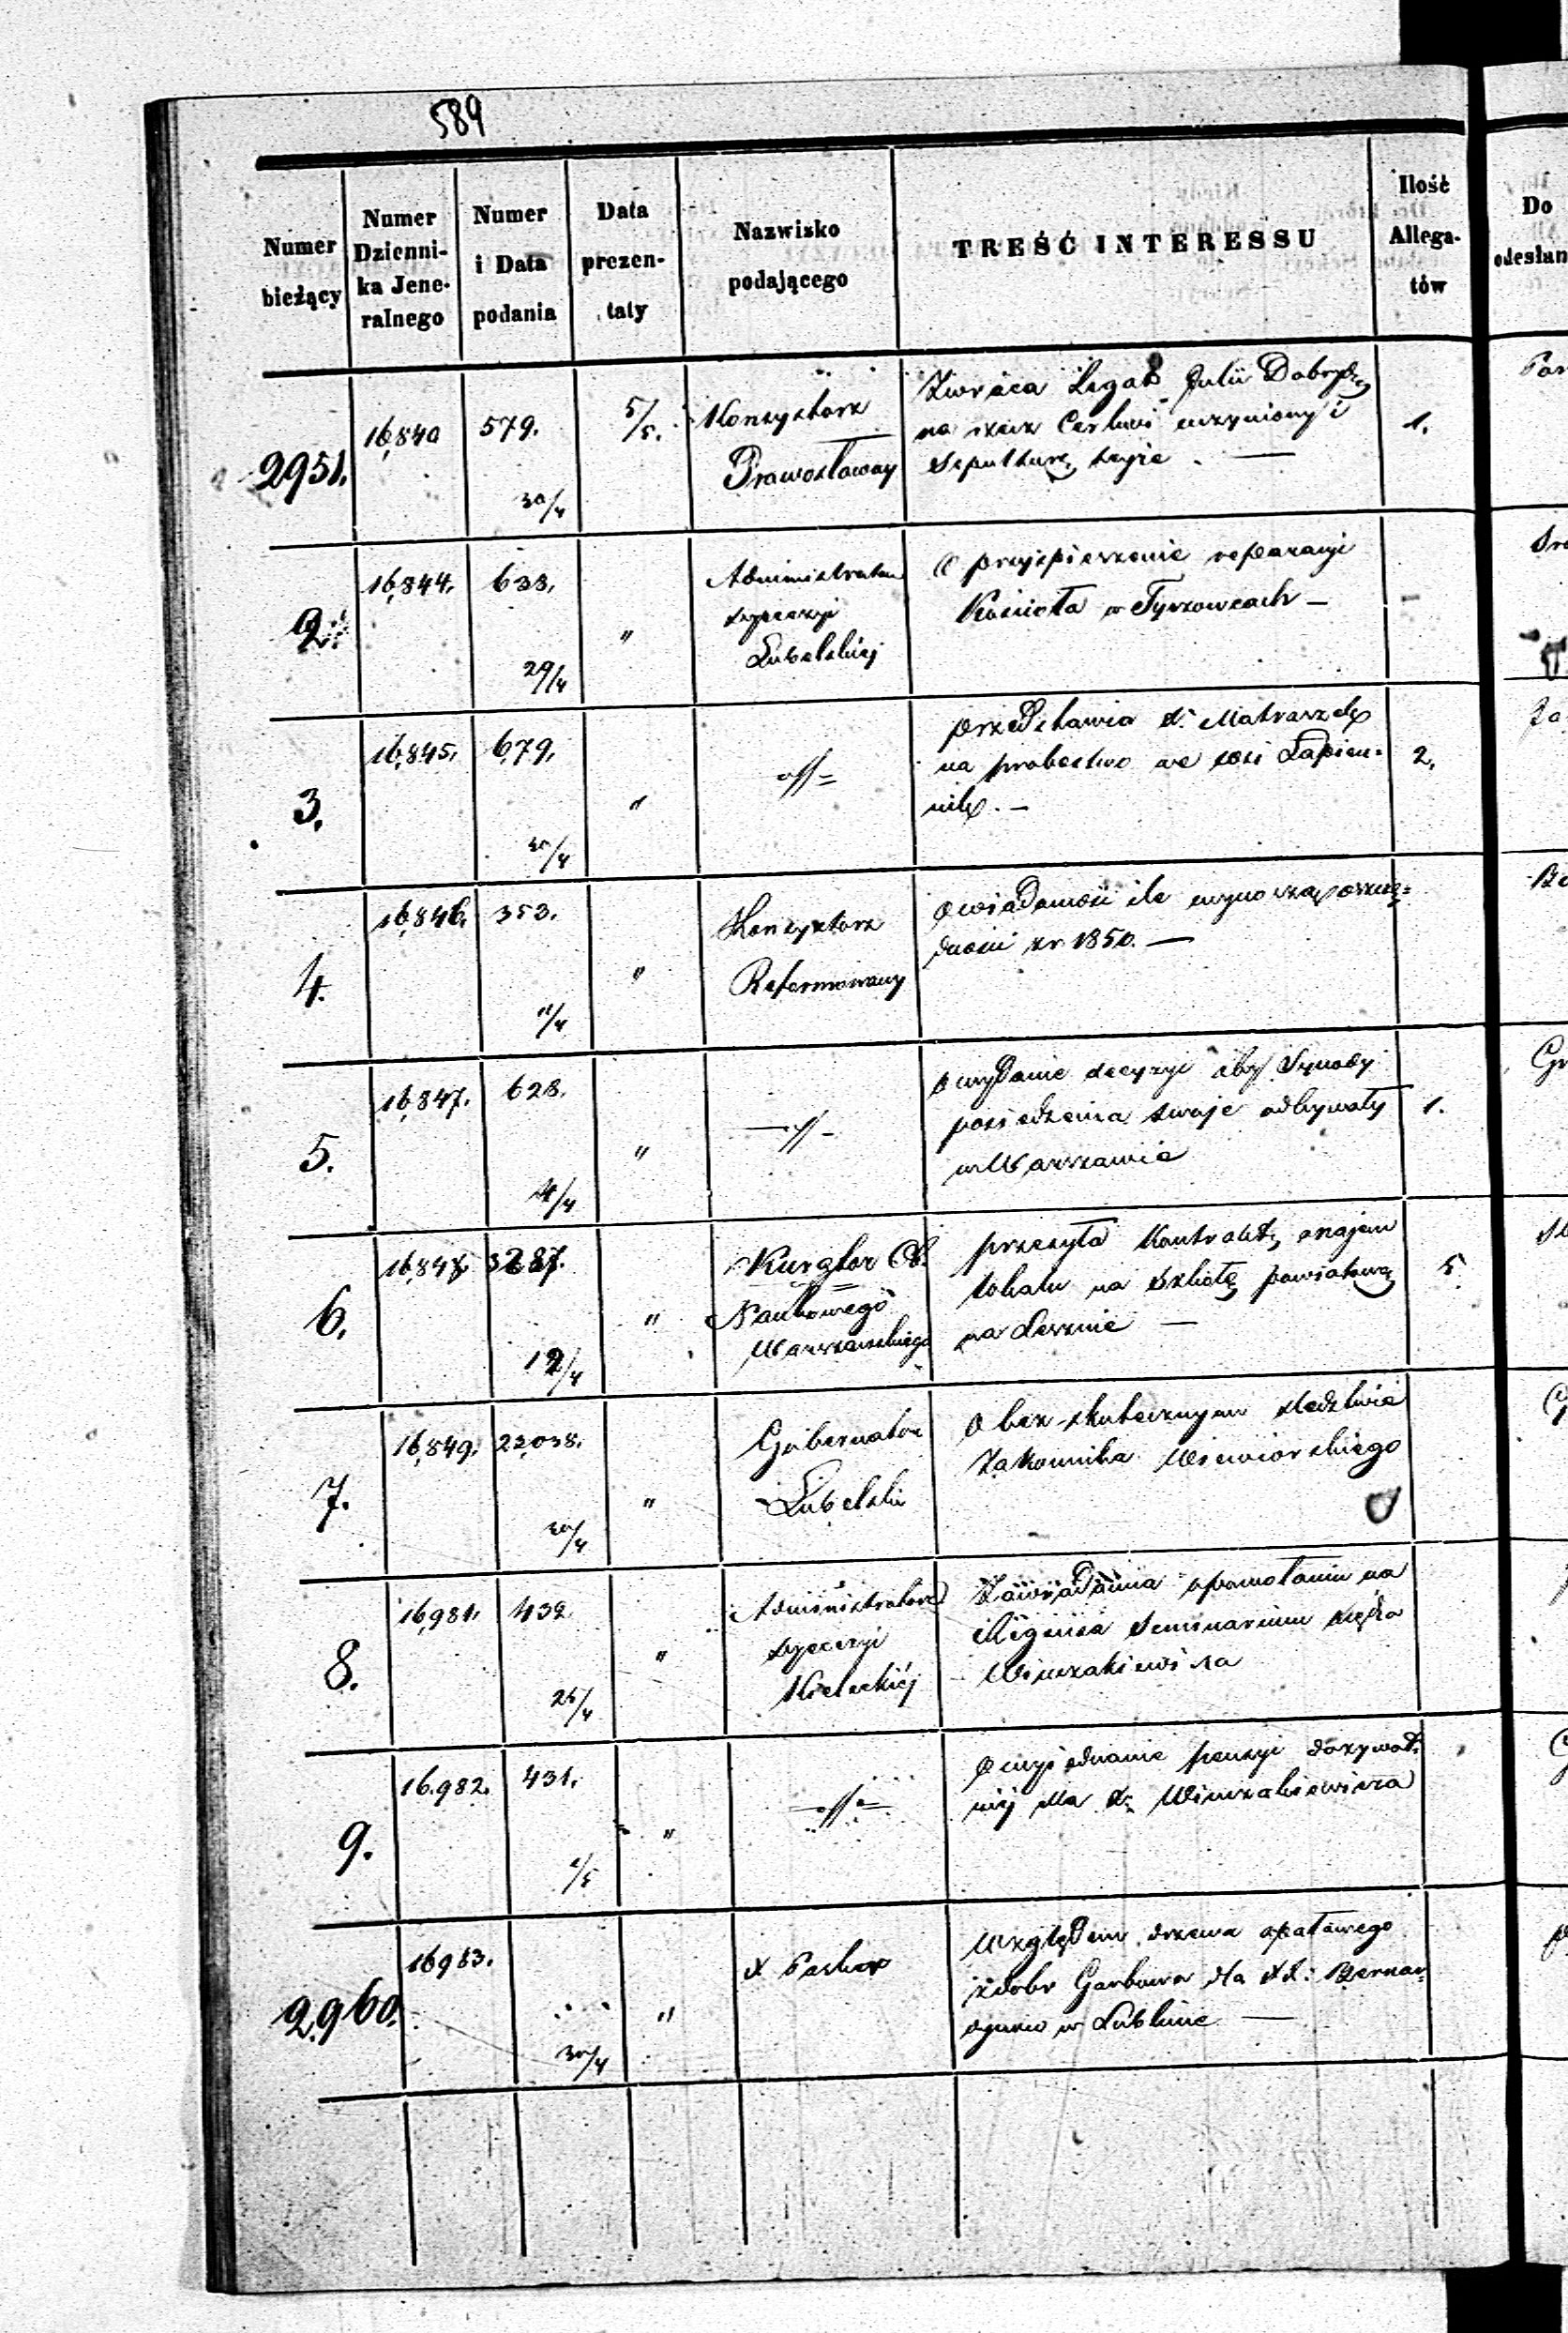 589
Numer bieżący | Numer Dzienni-ka Jene-ralnego | Numer i Data podania | Data prezen-taty | Nazwisko podającego | TREŚĆ INTERESSU | Ilość Allega-tów | Do odesłan
2951. | 16,840 | 579. 30/4 | 5/5. | Konsystorz
Prawosławny
Zwraca Legat Julii
na rzecz Cerkwi uczyniony i
1.
2. | 16,844. | 633. 29/4 | "
Administrator
dyecezyi
Lubelskiej
O przyspieszenie reparacyi
Kościoła w Tyszowcach —
3. | 16,845. | 679. 30/4 | " | -//-
przedstawia X.
na probostwo we wsi Łapien-
nik. —
2.
4. | 16,846. | 353. 11/4 | "
Konsystorz
Reformowany
O wiadomość ile wynoszą oszczę-
dności z r. 1850. —
5. | 16,847. | 628. 4/4 | " | -//-
O wydanie decyzyi aby Synody
posiedzenia swoje odbywały
w Warszawie
1.
6. | 16,848. | 12/4 | "
Kurator O.
Naukowego
Warszawskiego
przesyła Kontrakt, o najem
lokalu na szkołę powiatową
na Lesznie —
5
7. | 16,849. | 23,038. 30/4 | "
Gubernator
Lubelski
O bezskutecznym śledztwie
Zakonnika Wiewiórskiego
8. | 16,981. | 432 25/4 | "
Administrator
dyecezyi
Kieleckiej
Zawiadamia o powołaniu na
Regensa Seminarium księdza
Winczakiewicza
9. | 16.982. | 431. 1/5 | " | -//-
O wyjednanie pensyi dożywot-
niej dla X. Winczakiewicza
2960. | 16983. | 30/4 | "
X
Względem drzewa opałowego
z dobr Garbowa dla XX. Bernar-
dynów w Lublinie —